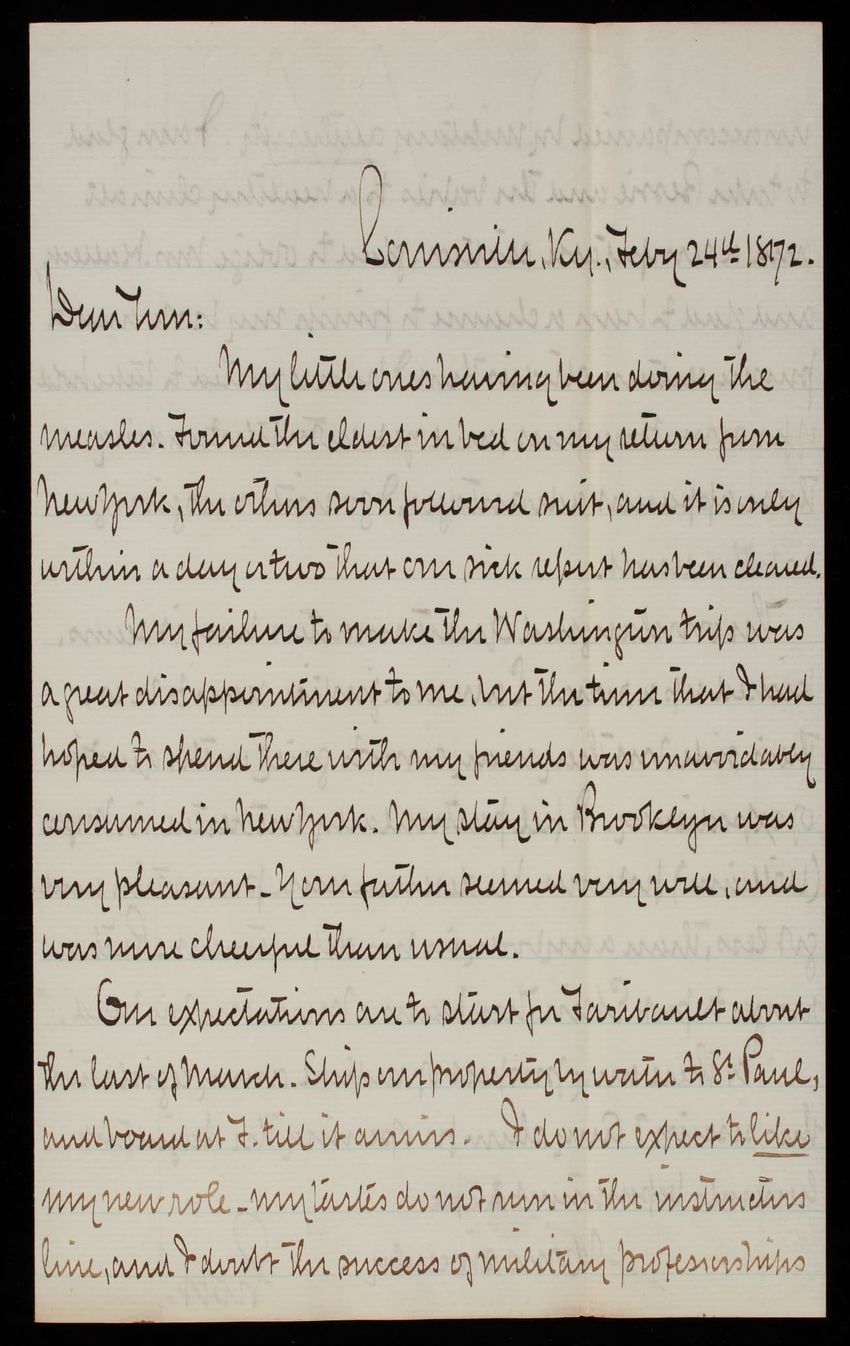 Louisville, Ky., Feby 24th 1872.
Dear Tom:
My little ones having been doing the
measles. Found the eldest in bed on my return from
New York, the others soon followed suit, and it is only
within a day or two that our sick report has been cleared.
My failure to make the Washington trip was
a great disappointment to me, but the time that I had
hoped to spend there with my friends was unavoidably
consumed in New York. My stay in Brooklyn was
very pleasant - Your father seemed very well, and
was more cheerful than usual.
Our expectations are to start for Faribault about
the last of March. Ship our property by water to St. Paul,
and board at F. till it arrives. I do not expect to like
my new role - my tastes do not run in the instructors
line, and I doubt the success of military professorships